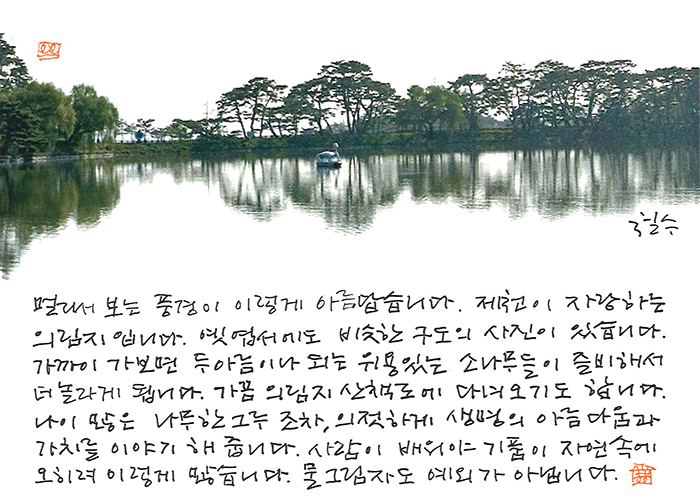 철수
멀리서 보는 풍경이 이렇게 아름답습니다. 제천이 자랑하는
의림지입니다. 옛엽서에도 비슷한 구도의 사진이 있습니다.
가까이 가보면 두아름이나 되는 위용있는 소나무들이 즐비해서
더 놀라게 됩니다. 가끔 의림지 산책로에 다녀오기도 합니다.
나이 많은 나무 한그루 조차, 의젓하게 생명의 아름다움과
가치를 이야기 해 줍니다. 사람이 배워야 할 기품이 자연속에
오히려 이렇게 많습니다. 물그림자도 예외가 아닙니다.